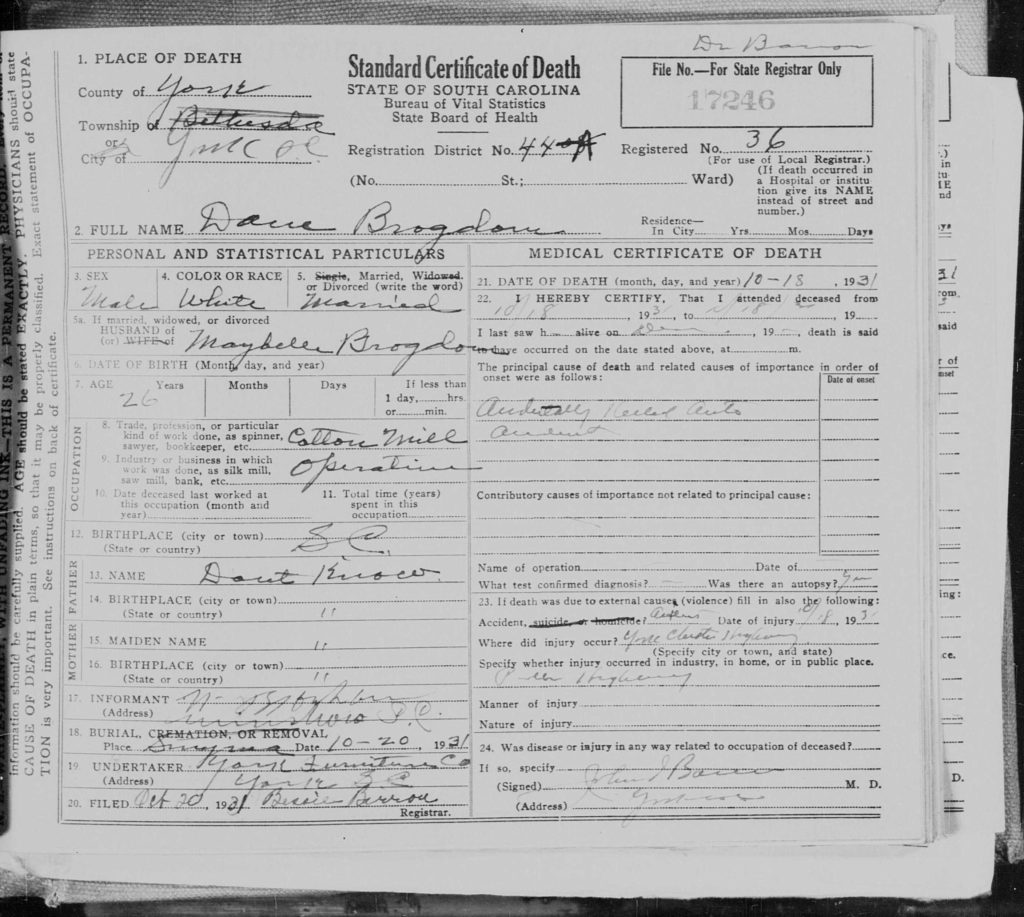 Dr Barron
1. PLACE OF DEATH
County of York
Township of Bethesda
or
City of York S.C.
Standard Certificate of Death
STATE OF SOUTH CAROLINA
Bureau of Vital Statistics
State Board of Health
File No.—For State Registrar Only
17246
Registration District No. 44 A
Registered No. 36
(For use of Local Registrar.)
(No. St.; Ward)
(If death occurred in
a Hospital or institu
tion give its NAME
instead of street and
number.)
2. FULL NAME Dave Brogdon
Residence—
In City Yrs. Mos. Days
PERSONAL AND STATISTICAL PARTICULARS
3. SEX
Male
4. COLOR OR RACE
White
5. Single, Married, Widowed,
or Divorced (write the word)
Married
5a. If married, widowed, or divorced
HUSBAND of
(or) WIFE of Maybelle Brogdon
6. DATE OF BIRTH (Month, day, and year)
7. AGE Years Months Days If less than
26
1 day, hrs.
or min.
OCCUPATION
8. Trade, profession, or particular
kind of work done, as spinner,
sawyer, bookkeeper, etc. Cotton Mill
9. Industry or business in which
work was done, as silk mill,
saw mill, bank, etc. Operative
10. Date deceased last worked at
this occupation (month and
year)
11. Total time (years)
spent in this
occupation
12. BIRTHPLACE (city or town) S C
(State or country)
FATHER
13. NAME Dont Know
14. BIRTHPLACE (city or town)
(State or country) "
MOTHER
15. MAIDEN NAME "
16. BIRTHPLACE (city or town)
(State or country) "
17. INFORMANT
(Address)
18. BURIAL, CREMATION, OR REMOVAL
Place Smyrna Date 10-20, 1931
19. UNDERTAKER York Furniture Co
(Address) York S C
20. FILED Oct 20, 1931 Bessie Barron
Registrar.
MEDICAL CERTIFICATE OF DEATH
21. DATE OF DEATH (month, day, and year) 10-18, 1931
22. I HEREBY CERTIFY, That I attended deceased from
10/18, 193 to 18, 19
I last saw h alive on , 19 death is said
to have occurred on the date stated above, at m.
The principal cause of death and related causes of importance in order of
onset were as follows:
Date of onset
Accidentally Killed Auto
Accident
Contributory causes of importance not related to principal cause:
Name of operation Date of
What test confirmed diagnosis? Was there an autopsy?
23. If death was due to external causes (violence) fill in also the following:
Accident, suicide, or homicide? Accident Date of injury 10/18, 193
Where did injury occur? York Highway
(Specify city or town, and state)
Specify whether injury occurred in industry, in home, or in public place.
Highway
Manner of injury
Nature of injury
24. Was disease or injury in any way related to occupation of deceased?
If so, specify
(Signed) M. D.
(Address)
CAUSE OF DEATH in plain terms, so that it may be properly classified. Exact statement of OCCUPA-
TION is very important. See instructions on back of certificate.